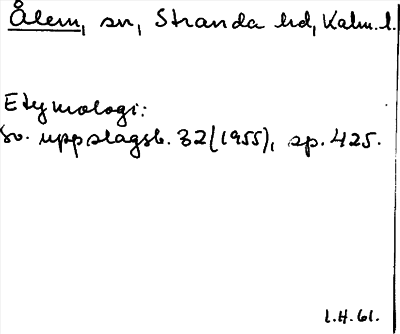 Ålem, sn, Stranda hd, Kalm. l.
Etymologi:
Sv. uppslagsb. 32 (1955), sp. 425.
L.H. 61.